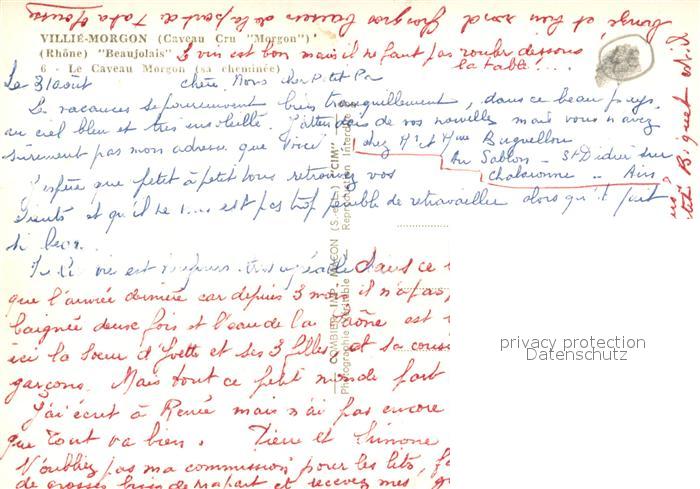 VILLIÉ-MORGON (Caveau Cru "Morgon")
(Rhône) "Beaujolais"
6 - Le Caveau Morgon (sa cheminée)
le vin est bon mais il ne faut pas rouler dessous
la table! ...
Le 31 août
chère Nous cher Ptit Pa
Les vacances se poursuivent bien tranquillement, dans ce beau pays,
au ciel bleu et très ensoleillé. J'attendais de vos nouvelles mais vous n'avez
sûrement pas mon adresse que voici: chez Mr et Mme Buguellou
Au Sablon - St Didier sur
Chalaronne - Ain
J'espère que petit à petit vous retrouvez vos
et qu'il ne est pas trop pénible de retravailler alors qu'il fait
si beau.
Ici la vie est toujours très agréable dans ce
que l'année dernière car depuis 3 mois il n'a pas
baignée deux fois et l'eau de la Saône est
ici la soeur d'Yvette et ses 3 filles et sa cousi
garçons. Mais tout ce petit monde fort
J'ai écrit à Renée mais n'ai pas encore
que tout va bien. Pierre et Simone
N'oubliez pas ma commission pour les lits,
de grosses bises de ma part et recevez mes
COMBIER IMP. MACON (S.-et-L.) "CIM"
Photographie Véritable - Reproduction Interdite
privacy protection
Datenschutz